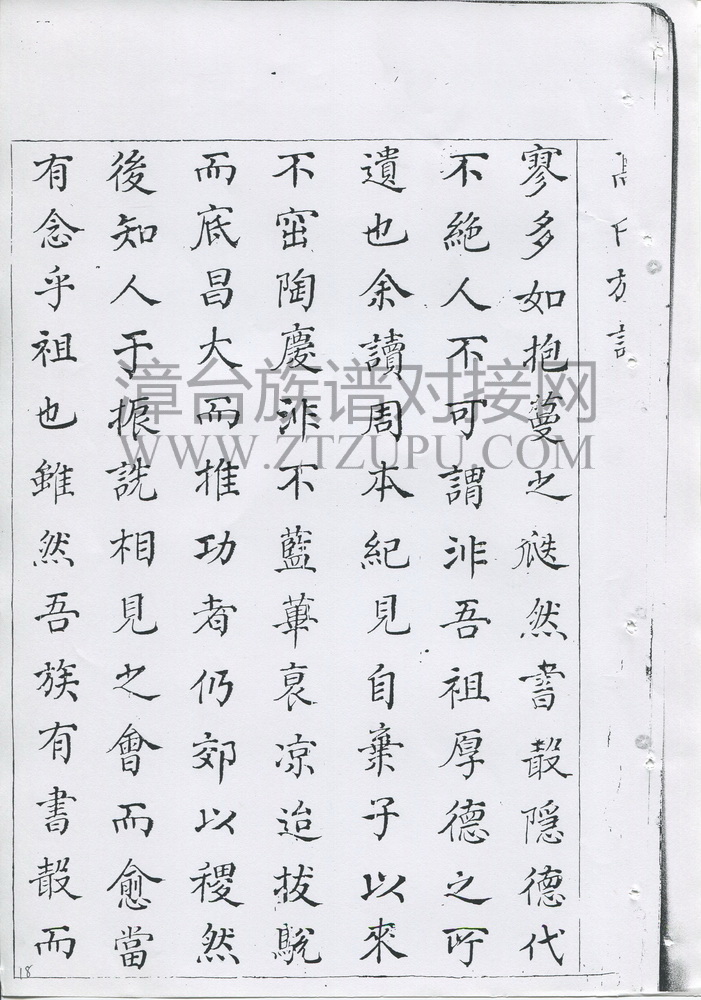 方言
寥多如抱蔓之瓞然書穀隱德代
不絶人不可謂非吾祖厚德之所
遺也余讀周本紀見自棄子以來
不窋陶慶非不藍蓽衰凉迨拔駾
而底昌大而推功者仍郊以稷然
後知人于振詵相見之會而愈當
有念乎祖也雖然吾族有書穀而
漳台族谱对接网
WWW.ZTZUPU.COM
18